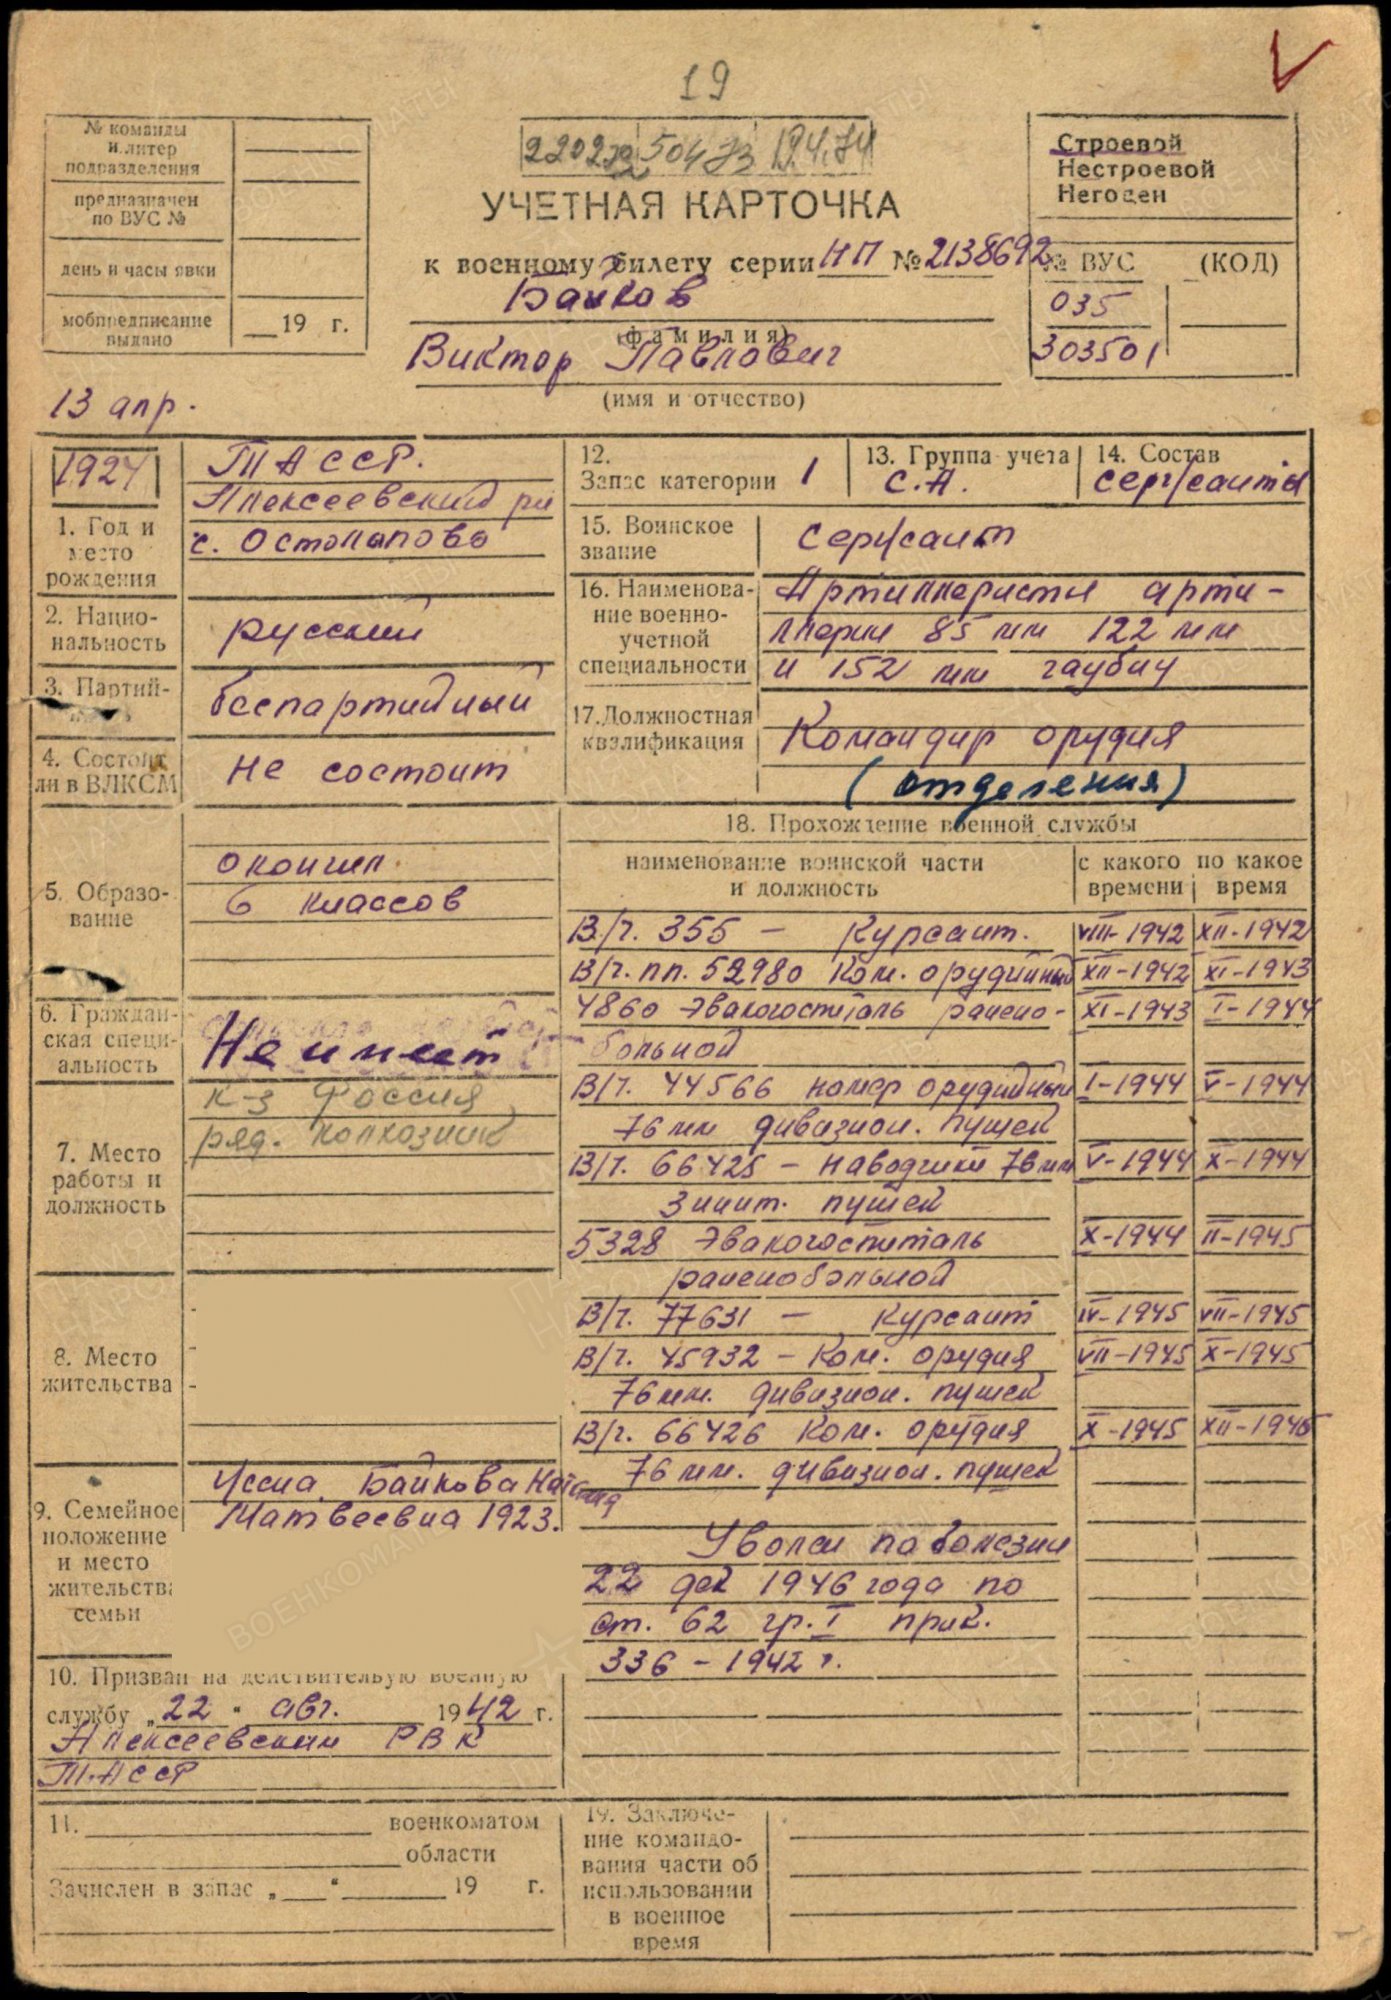 19
№ команды
и литер
подразделения
предназначен
по ВУС №
день и часы явки
мобпредписание
выдано
19 г.
УЧЕТНАЯ КАРТОЧКА
к военному билету серии НП № 2138692
Байков
(фамилия)
Виктор Павлович
(имя и отчество)
Строевой
Нестроевой
Негоден
№ ВУС (КОД)
035
303501
13 апр.
1924
1. Год и
место
рождения
ТАССР.
Алексеевский р-н
с. Остолопово
2. Нацио-
нальность
русский
3. Партий-
беспартийный
4. Состоит
ли в ВЛКСМ
не состоит
5. Образо-
вание
окончил
6 классов
6. Граждан-
ская специ-
альность
Не имеет
7. Место
работы и
должность
к-з Россия
ряд. колхозник
8. Место
жительства
9. Семейное
положение
и место
жительства
семьи
Байкова
Матвеевна 1923.
10. Призван на действительую военную
службу „22" авг. 1942 г.
Алексеевским РВК
ТАССР
11. военкоматом
области
Зачислен в запас „ “ 19 г.
12.
Запас категории 1
13. Группа учета
С.А.
14. Состав
сержанты
15. Воинское
звание
сержант
16. Наименова-
ние военно-
учетной
специальности
Артиллеристы арти-
ллерии 85 мм 122 мм
и 152 мм гаубиц
17. Должностная
квалификация
Командир орудия
(отделения)
18. Прохождение военной службы
наименование воинской части
и должность
с какого
времени
по какое
время
В/ч. 355 – Курсант. VIII-1942 XII-1942
В/ч. пп. 52980 Ком. орудийный XII-1942 XI-1943
4860 Эвакогоспиталь ранено- XI-1943 I-1944
больной
В/ч. 44566 номер орудийный I-1944 V-1944
76 мм дивизион. пушек
В/ч. 66425 – наводчик 76 мм V-1944 X-1944
зенит. пушек
5328 Эвакогоспиталь X-1944 II-1945
раненобольной
В/ч. 77631 – Курсант IV-1945 VII-1945
В/ч. 45932 – Ком. орудия VII-1945 X-1945
76 мм. дивизион. пушек
В/ч. 66426 Ком. орудия X-1945
76 мм. дивизион. пушек
Уволен по болезни
22 дек 1946 года по
ст. 62 гр. I прик.
336 – 1942 г.
19. Заключе-
ние командо-
вания части об
использовании
в военное
время